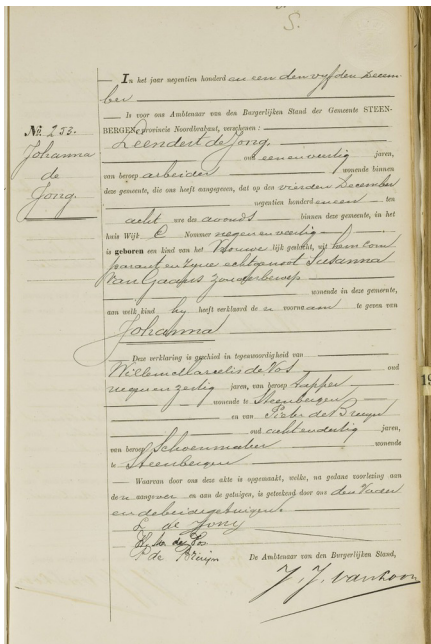 S.
In het jaar negentien honderd en een den vijfden Decem-
ber
Is voor ons Ambtenaar van den Burgerlijken Stand der Gemeente STEEN-
BERGEN, provincie Noordbrabant, verschenen:
Nº. 253.
Johanna
de
Jong.
Leendert de Jong,
oud eenenveertig jaren,
van beroep arbeider wonende binnen
deze gemeente, die ons heeft aangegeven, dat op den vierden December
negentien honderd een ten
acht ure des avonds binnen deze gemeente, in het
huis Wijk C Nommer negen en veertig
is geboren een kind van het Vrouwelijk geslacht, uit hem com
parant en zijne echtgenoot Susanna
van Gaans zonder beroep
wonende in deze gemeente,
aan welk kind hij heeft verklaard de n voornaam te geven van
Johanna
Deze verklaring is geschied in tegenwoordigheid van
Willem Marcelis de Vos oud
negen en zestig jaren, van beroep
wonende te Steenbergen
en van Pieter de Bruijn
oud achtendertig jaren,
van beroep Schoenmaker wonende
te Steenbergen
Waarvan door ons deze akte is opgemaakt, welke, na gedane voorlezing aan
de n aangever en aan de getuigen, is geteekend door ons den Vader
en de beide getuigen.
L de Jong
de Vos
P. de Bruijn
De Ambtenaar van den Burgerlijken Stand,
J. J. van Loon
19